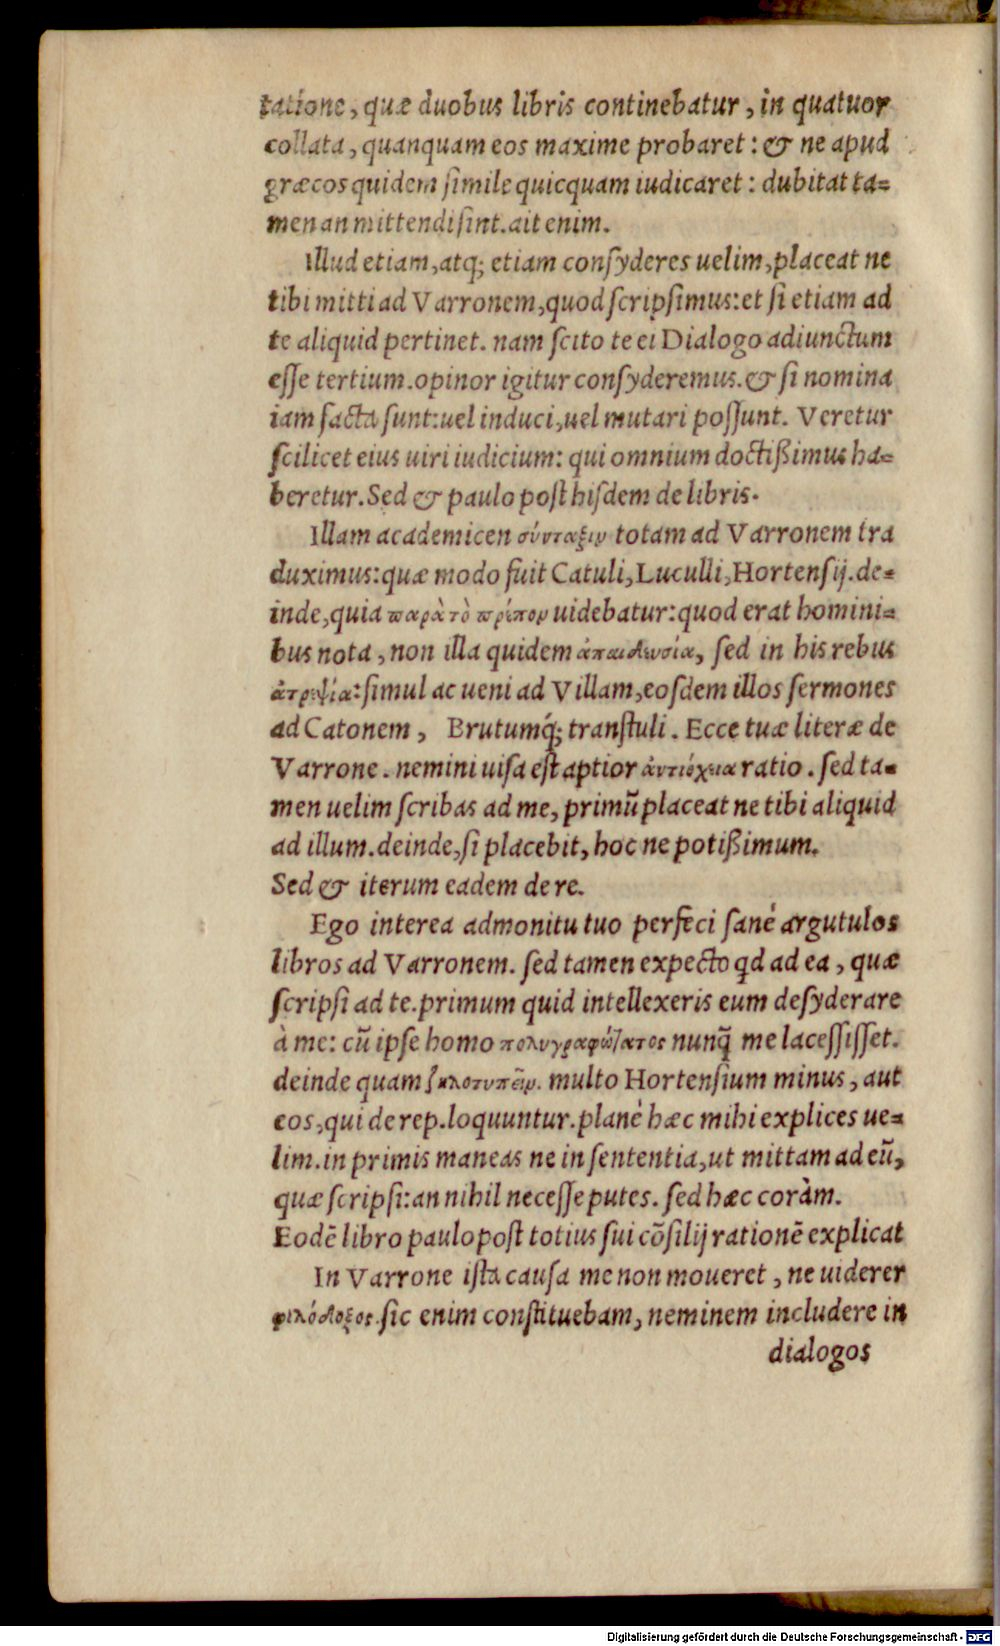 tatione, quæ duobus libris continebatur, in quatuor
collata, quanquam eos maxime probaret: & ne apud
græcos quidem ſimile quicquam iudicaret: dubitat ta=
men an mittendi ſint. ait enim.
Illud etiam, atq; etiam conſyderes uelim, placeat ne
tibi mitti ad Varronem, quod ſcripſimus: et ſi etiam ad
te aliquid pertinet. nam ſcito te ei Dialogo adiunctum
eſſe tertium. opinor igitur conſyderemus. & ſi nomina
iam facta ſunt: uel induci, uel mutari poſſunt. Veretur
ſcilicet eius uiri iudicium: qui omnium doctißimus ha=
beretur. Sed & paulo poſt hiſdem de libris.
Illam academicen σύνταξιν totam ad Varronem tra
duximus: quæ modo fuit Catuli, Luculli, Hortenſij. de=
inde, quia παρὰ τὸ πρέπον uidebatur: quod erat homini=
bus nota, non illa quidem ἀπαιδευσία, ſed in his rebus
ἀτριψία: ſimul ac ueni ad Villam, eoſdem illos ſermones
ad Catonem, Brutumq́; tranſtuli. Ecce tuæ literæ de
Varrone. nemini uiſa eſt aptior ἀντιόχεια ratio. ſed ta=
men uelim ſcribas ad me, primũ placeat ne tibi aliquid
ad illum. deinde, ſi placebit, hoc ne potißimum.
Sed & iterum eadem de re.
Ego interea admonitu tuo perfeci ſané argutulos
libros ad Varronem. ſed tamen expecto qd ad ea, quæ
ſcripſi ad te. primum quid intellexeris eum deſyderare
à me: cũ ipſe homo πολυγραφώτατος nunq̃ me laceſſiſſet.
deinde quam ζηλοτυπεῖν. multo Hortenſium minus, aut
eos, qui de rep. loquuntur. planè hæc mihi explices ue=
lim. in primis maneas ne in ſententia, ut mittam ad eũ,
quæ ſcripſi: an nihil neceſſe putes. ſed hæc coràm.
Eodẽ libro paulo poſt totius ſui cõſilij rationẽ explicat
In Varrone iſta cauſa me non moueret, ne uiderer
φιλόδοξος. ſic enim conſtituebam, neminem includere in
dialogos
Digitalisierung gefördert durch die Deutsche Forschungsgemeinschaft - DFG